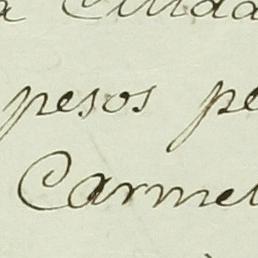 a Ciuda
pesos pe
Carmel